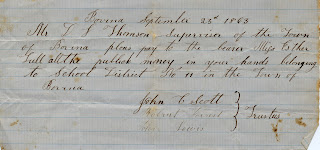 Bovina September 23d 1863
Mr T. S. Thomson Supervisor of the Town
of Bovina pleas pay to the bearer Miss Esther
Gull all the publish money in your hands belonging
to School District No 11 in the Town of
Bovina
John C Scott
Trustus